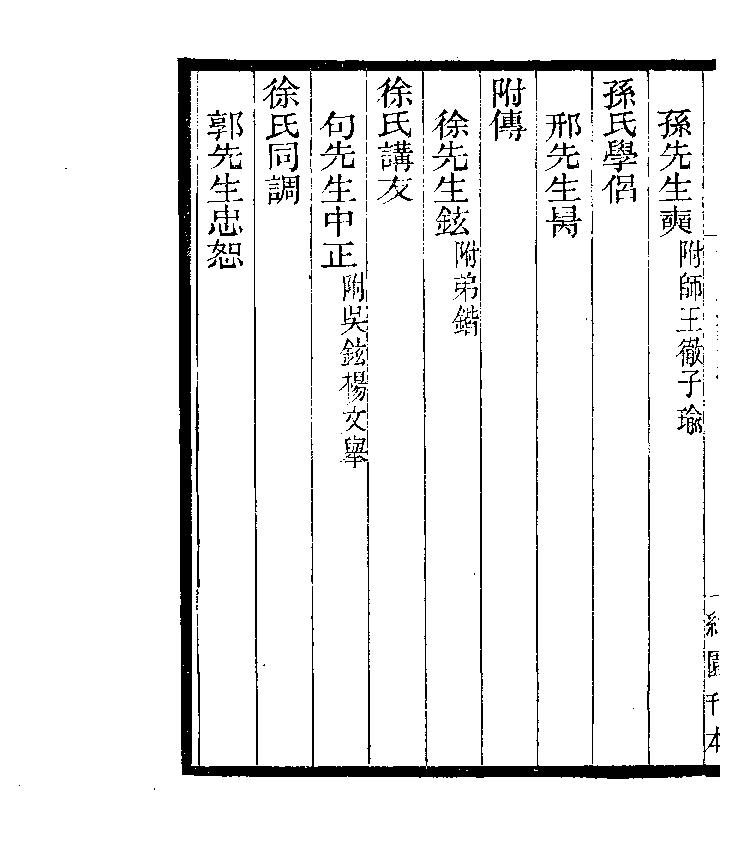 孫先生奭附師王徹子瑜
孫氏學侶
邢先生昺
附傳
徐先生鉉附弟鍇
徐氏講友
句先生中正附吳鉉楊文舉
徐氏同調
郭先生忠恕
約園刊本